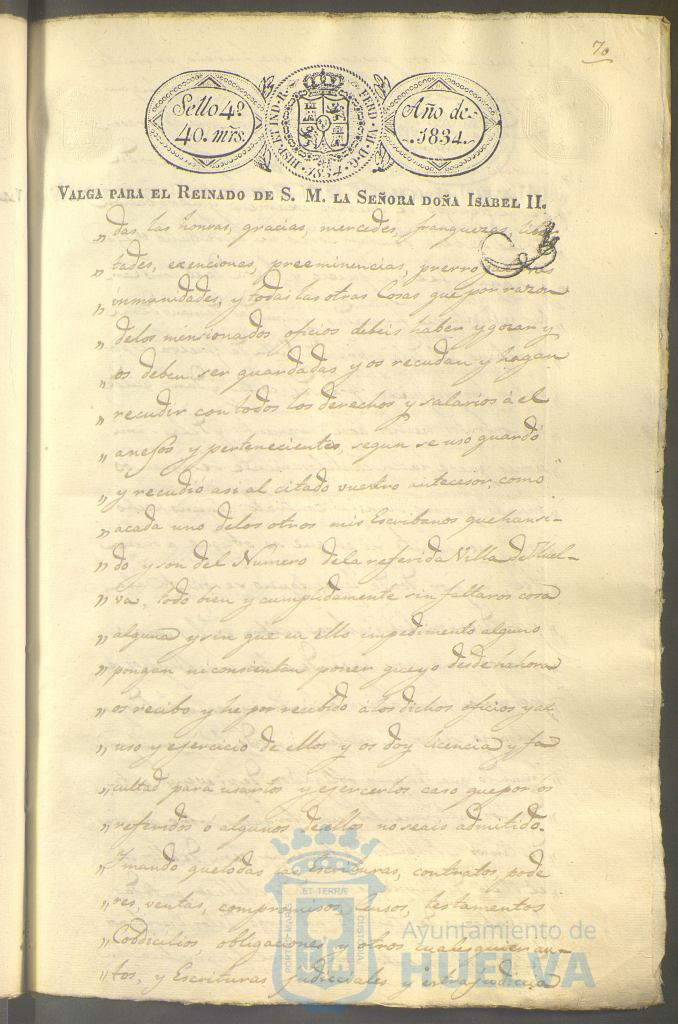 70
Sello 4º
40. mrs.
HISP. ET IND. R. FERD. VII. D. G.
1834
Año de
1834.
VALGA PARA EL REINADO DE S. M. LA SEÑORA DOÑA ISABEL II.
„ das las honras, gracias, mercedes, franquezas, liber
„ tades, exenciones, preeminencias, prerrogativas
„ inmunidades, y todas las otras Cosas que por razon
„ delos mencionados oficios debeis haber y gozar y
„ os deben ser guardadas y os recudan y hagan
„ recudir con todos los derechos y salarios á el
„ anejos y pertenecientes, segun se uso guardó
„ y recudio asi al citado vuestro antecesor, como
„ acada uno delos otros mis Escribanos que han si-
„ do y son del Numero dela referida Villa de Huel-
„ va, todo bien y cumplidamente sin faltaros cosa
„ alguna y sin que en ello impedimento alguno
„ pongan ni consientan poner que yo desde hahora
„ os recibo y he por recibido á los dichos oficios y al
„ uso y ejercicio de ellos y os doy licencia y fa
„ cultad para usarlos y ejercerlos caso que por los
„ referidos ó algunos de ellos no seais admitido.
„ Y mando que todas las Escrituras, contratos, pode
„ res, ventas, compromisos, Censos, testamentos
„ Codicilios, obligaciones, y otros cualesquier au-
„ tos, y Escrituras Judiciales y extrajudicia
PORTUS MARIS ET TERRAE CUSTODIA
Ayuntamiento de
HUELVA